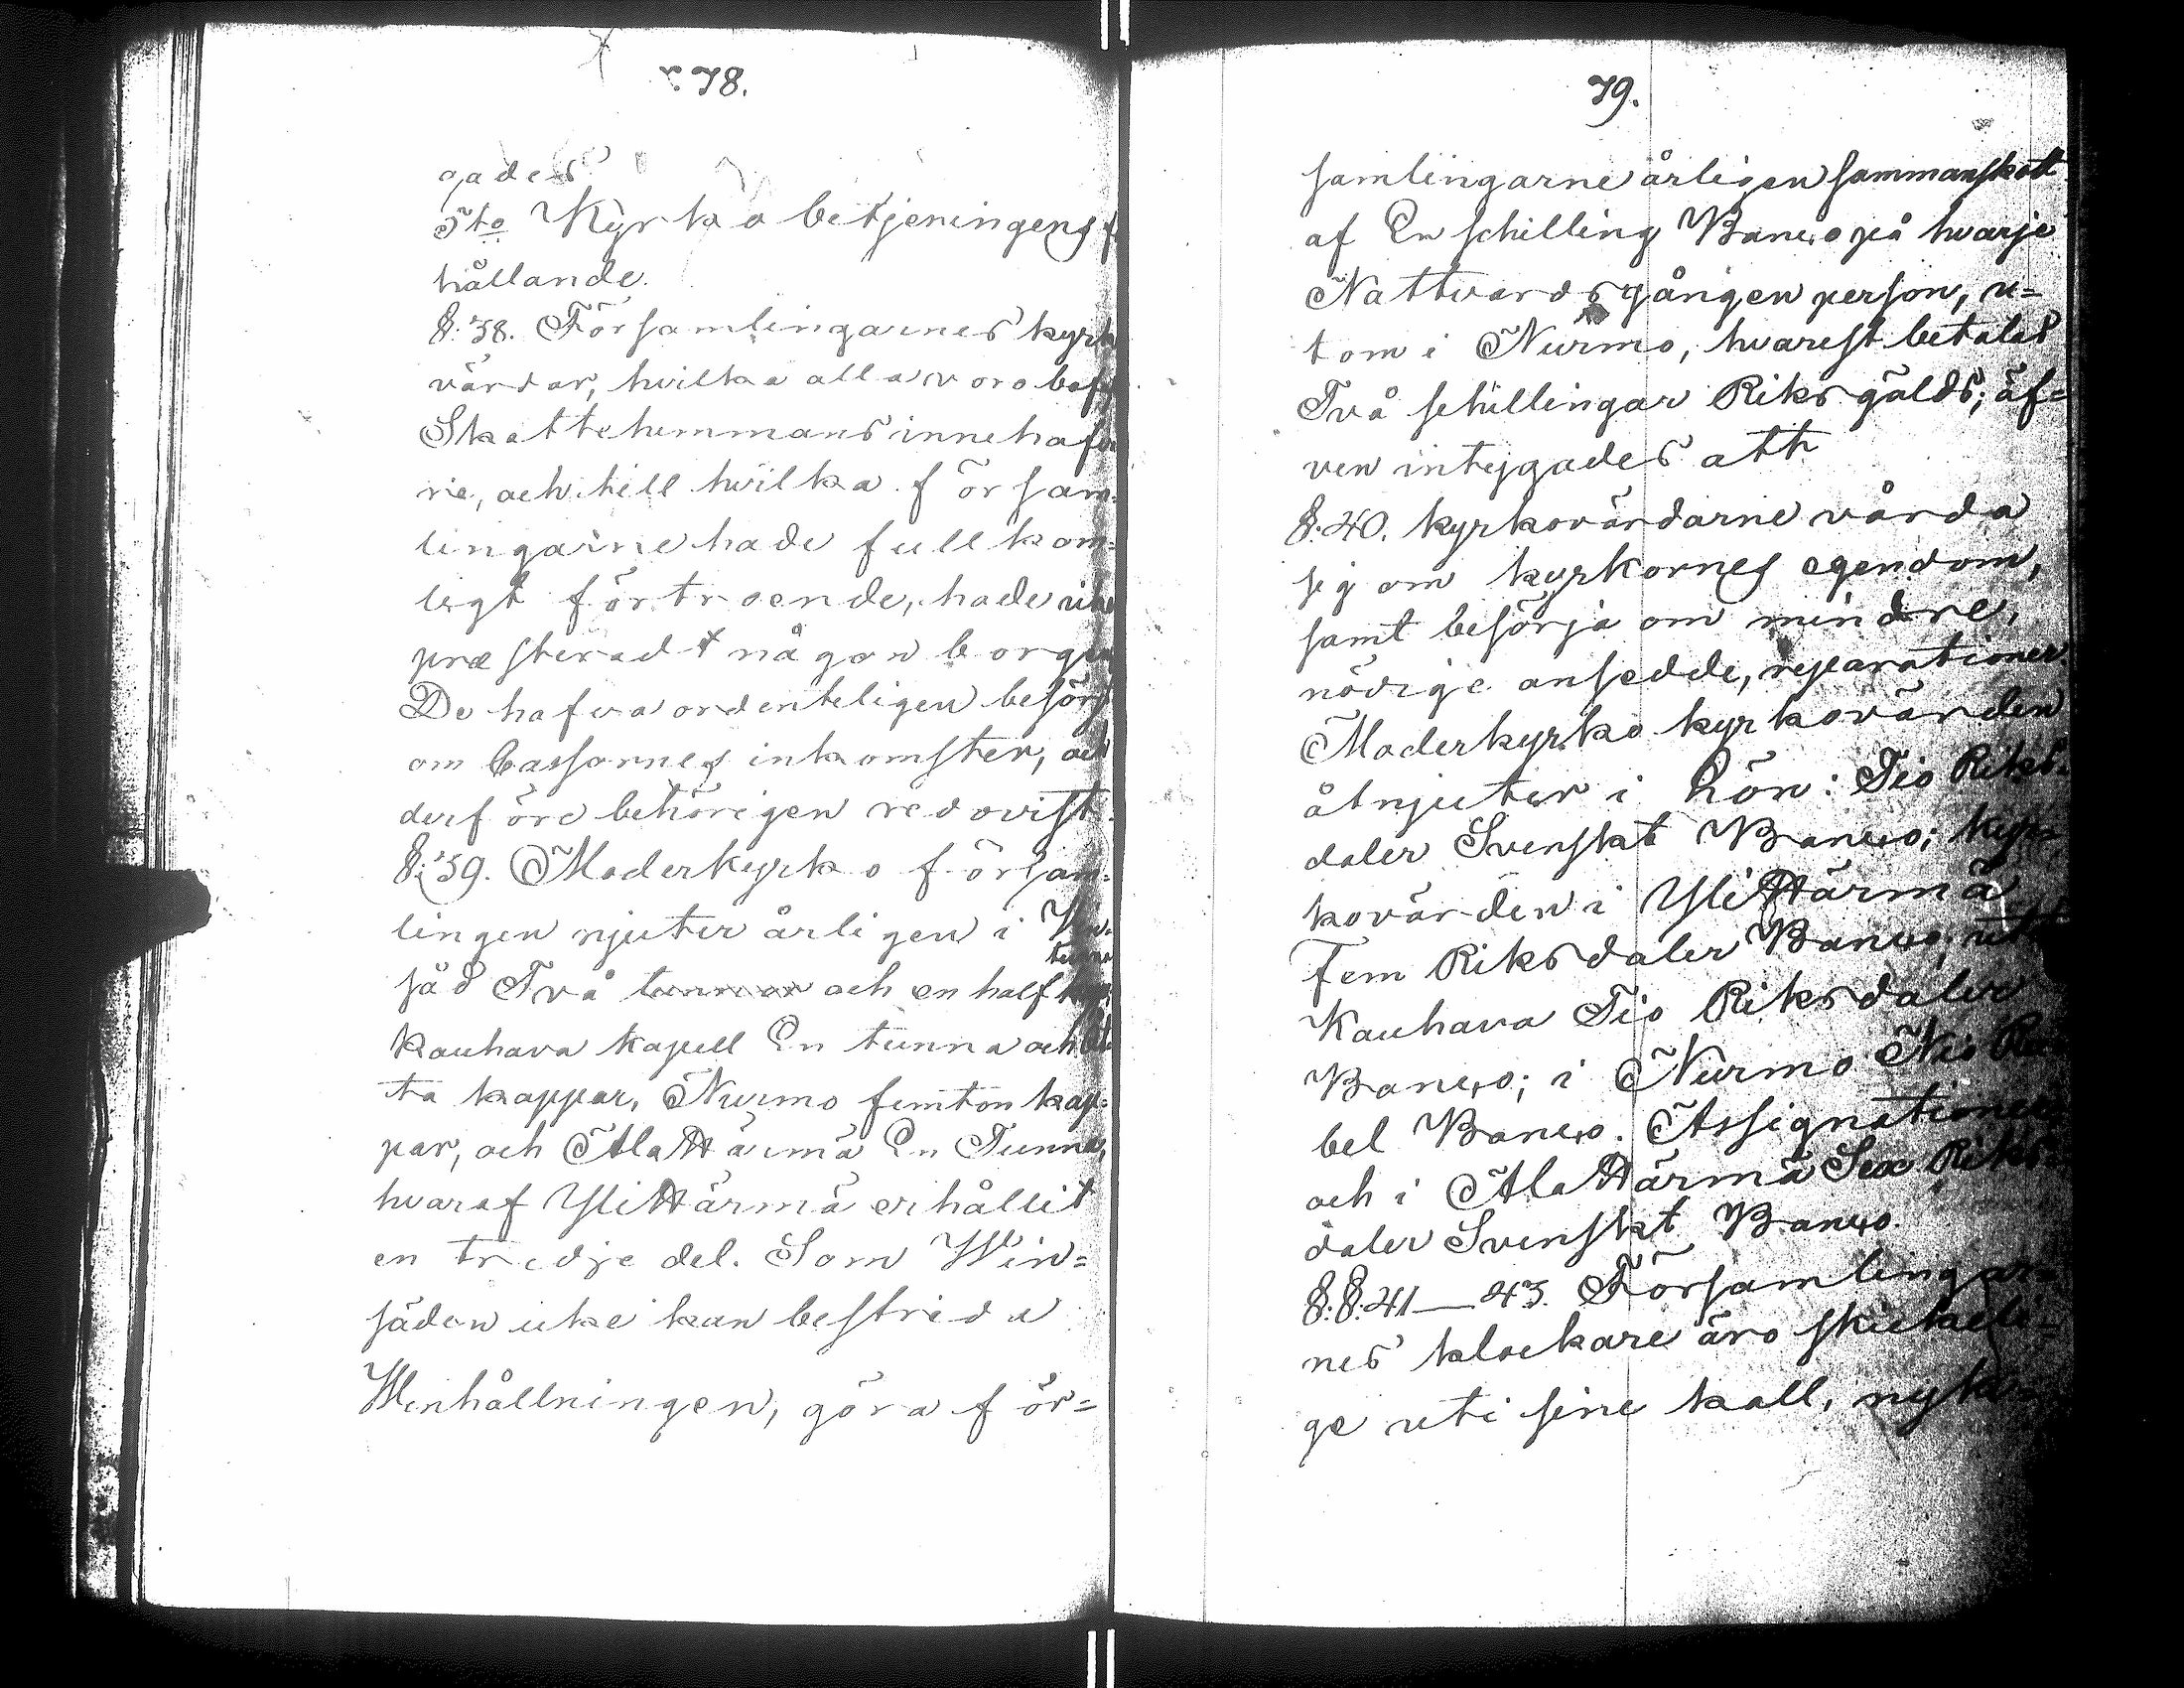 78.
gades
5to Kyrko betjeningens
hållande.
§. 38. Församlingarnes kyrk
värdar, hvilka alla voro bofa
Skattehemmans innehafva
re, och till hvilka försam-
lingarne hade fullkom-
ligt förtroende, hade icke
præsteradt någon borgen
De hafva ordenteligen besörgt
om Cassornes inkomster, och
derföre behörigen redovist.
§. 39. Moderkyrko försam-
lingen njuter årligen i Vin-
tunna
säd Två tunnor och en half
Kauhava kapell En tunna och åt
ta kappar, Nurmo femton kap-
par, och Ala Härmä En Tunna,
hvaraf Yli Härmä erhållit
en tredje del. Som Win=
säden icke kan bestrida
Winhållningen, göra för=
79.
samlingarne årligen sammanskott
af En schilling Banco på hvarje
Nattvardsgången person, u=
tom i Nurmo, hvarest betalas
Två schillingar Riksgälds; äf=
ven intygades att
§. 40. kyrkovärdarne vårda
sig om kyrkornes egendom,
samt besörja om mindre,
nödige ansedde, reparationer.
Moderkyrko kyrkovärden
åtnjuter i Lön: Tio Riks-
daler Svenskt Banco; kyr-
kovärden i Yli Härmä
Fem Riksdaler Banco; uti
Kauhava Tio Riksdaler
Banco; i Nurmo Nio Ru
bel Banco. Assignationer
och i Ala Härmä Sex Riks-
daler Svenskt Banco.
§.§. 41 — 43. Församlingar
nes klockare äro skickeli=
ge uti sine kall, nyk